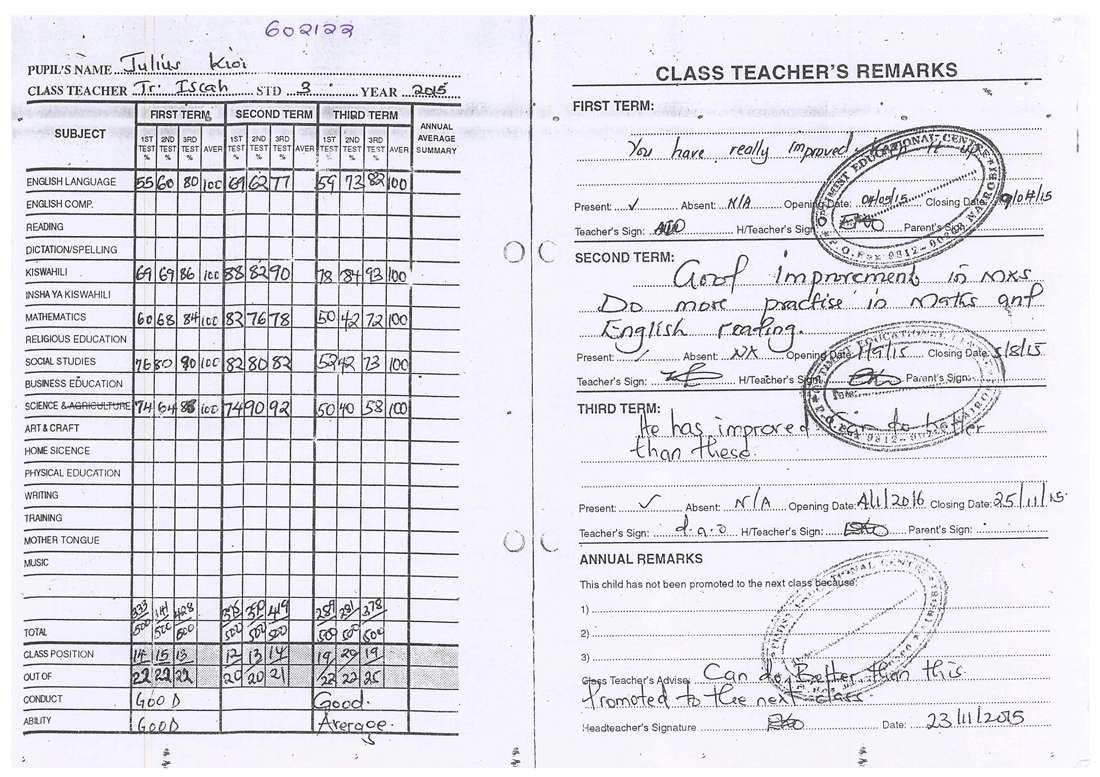 602122
PUPIL'S NAME Julius Kioi
CLASS TEACHER Tr. Iscah STD 3 YEAR 2015
SUBJECT FIRST TERM SECOND TERM THIRD TERM ANNUAL AVERAGE SUMMARY
1ST TEST % 2ND TEST % 3RD TEST % AVER 1ST TEST % 2ND TEST % 3RD TEST % AVER 1ST TEST % 2ND TEST % 3RD TEST % AVER
ENGLISH LANGUAGE 55 60 80 100 69 62 77 59 73 82 100
ENGLISH COMP.
READING
DICTATION/SPELLING
KISWAHILI 69 69 86 100 88 82 90 78 84 93 100
INSHA YA KISWAHILI
MATHEMATICS 60 68 84 100 83 76 78 50 42 72 100
RELIGIOUS EDUCATION
SOCIAL STUDIES 76 80 90 100 82 80 82 52 42 73 100
BUSINESS EDUCATION
SCIENCE & AGRICULTURE 74 64 88 100 74 90 92 50 40 58 100
ART & CRAFT
HOME SICENCE
PHYSICAL EDUCATION
WRITING
TRAINING
MOTHER TONGUE
MUSIC
428 419 289 281 378
TOTAL 500 500 500 500 500 500 500 500 500
CLASS POSITION 14 15 13 12 13 14 19 20 19
OUT OF 22 22 22 20 20 21 22 22 25
CONDUCT GOOD Good.
ABILITY GOOD Average.
CLASS TEACHER'S REMARKS
FIRST TERM:
You have really improved
Present: ✓ Absent: N/A Opening Date: 04/05/15 Closing Date: 9/04/15
Teacher's Sign: H/Teacher's Sign: Parent's Sign:
SECOND TERM: Good improvement in mks
Do more practise in maths and
English reading.
Present: ✓ Absent: N/A Opening Date: 1/9/15 Closing Date: 5/8/15
Teacher's Sign: H/Teacher's Sign: Parent's Sign:
THIRD TERM:
He has improved Can do better
than these.
Present: ✓ Absent: N/A Opening Date: 4/1/2016 Closing Date: 25/11/15.
Teacher's Sign: H/Teacher's Sign: Parent's Sign:
ANNUAL REMARKS
This child has not been promoted to the next class because:
1)
2)
3)
Class Teacher's Advise: Can do Better than this
Promoted to the next class
Headteacher's Signature Date: 23/11/2015